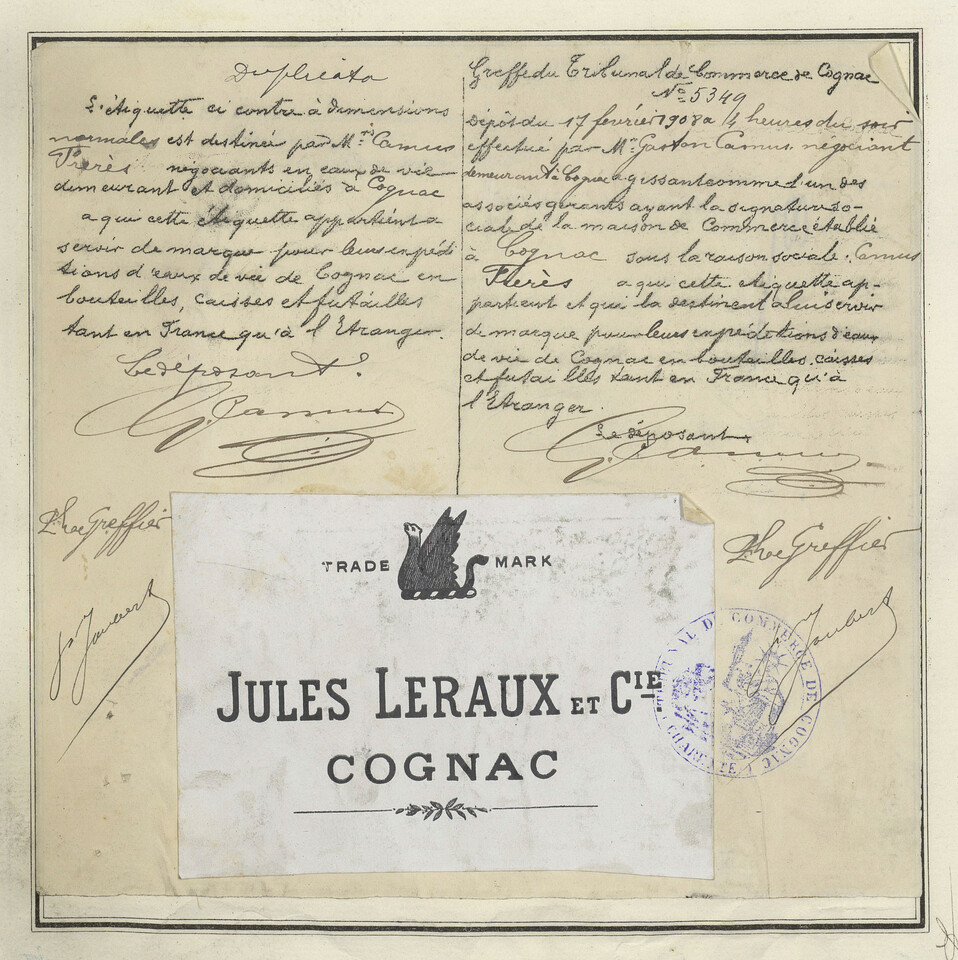 Duplicata
L'étiquette ci contre à dimensions
normales est destinée par Mrs Camus
Frères négociants en eaux de vie
demeurant et domiciliés à Cognac
a qui cette étiquette appartient a
servir de marque pour leurs expédi
tions d'eaux de vie de Cognac en
bouteilles, caisses et futailles
tant en France qu'à l'Etranger.
Le déposant
G. Camus
Greffe du Tribunal de Commerce de Cognac
No 5349
Dépôt du 17 février 1908 a 4 heures du soir
effectué par Mr Gaston Camus négociant
demeurant à Cognac agissant comme l'un des
associés gérants ayant la signature so-
ciale de la maison de Commerce établie
à Cognac sous la raison sociale Camus
Frères a qui cette étiquette ap-
partient et qui la destinent a lui servir
de marque pour leurs expéditions d'eaux
de vie de Cognac en bouteilles, caisses
et futailles tant en France qu'à
l'Etranger.
Le déposant
G. Camus
Greffier
Joubert
Greffier
Joubert
TRADE MARK
JULES LERAUX ET CIE
COGNAC
TRIBUNAL DE COMMERCE DE COGNAC
CHARENTE